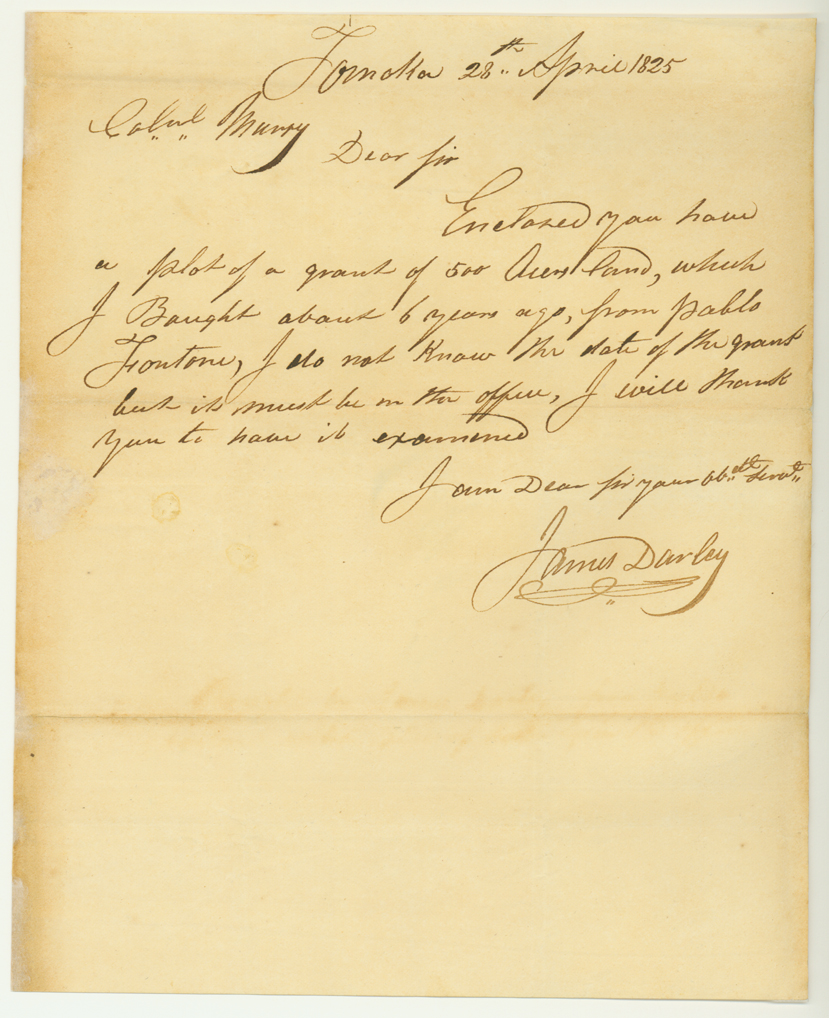 Tomoka 28th April 1825
Col,,nl,, Murry
Dear Sir
Enclosed you have
a plot of a grant of 500 Acers Land, which
I Bought about 6 years ago, from Pablo
Fontone, I do not Know the date of the grant
but it must be in the office, I will thank
you to have it examened
I am Dear Sir your Ob,,dt Servt,,
James Darley